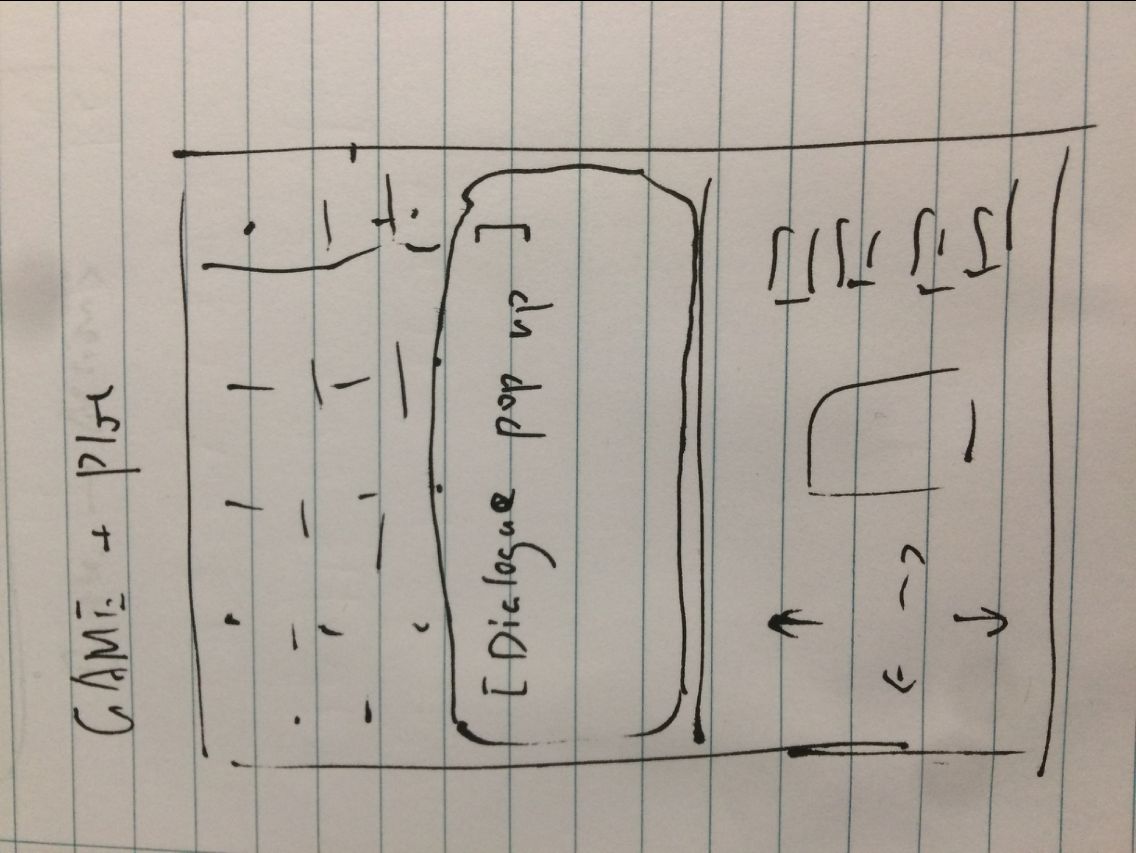 GAME + Plot
[Dialogue pop up]